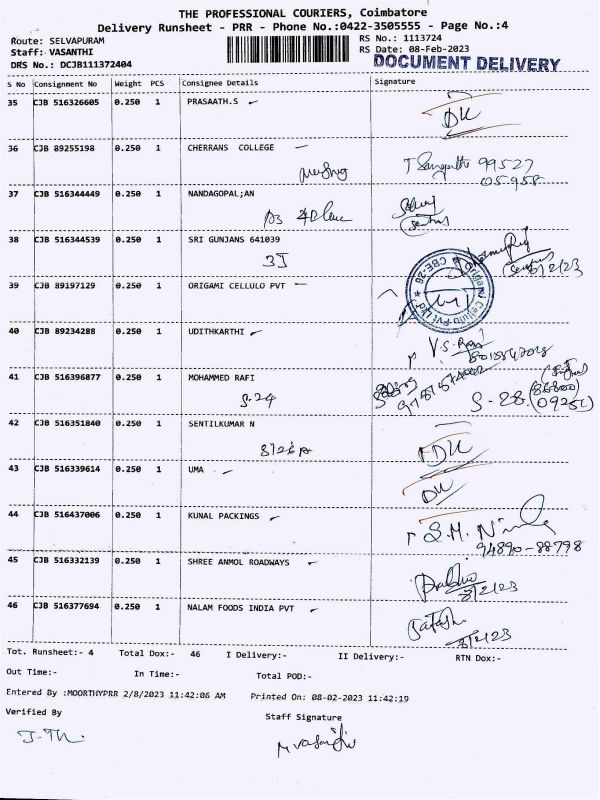 THE PROFESSIONAL COURIERS, Coimbatore
Delivery Runsheet - PRR - Phone No.:0422-3505555 - Page No.:4
Route: SELVAPURAM RS No.: 1113724
Staff: VASANTHI RS Date: 08-Feb-2023
DRS No.: DCJB111372404 DOCUMENT DELIVERY
S No Consignment No Weight PCS Consignee Details Signature
35 CJB 516326605 0.250 1 PRASAATH.S
DK
36 CJB 89255198 0.250 1 CHERRANS COLLEGE
99527
05958
37 CJB 516344449 0.250 1 NANDAGOPAL;AN
38 CJB 516344539 0.250 1 SRI GUNJANS 641039
39 CJB 89197129 0.250 1 ORIGAMI CELLULO PVT
Origami Cellulo Pvt Ltd * CBE-26 *
40 CJB 89234288 0.250 1 UDITHKARTHI
41 CJB 516396877 0.250 1 MOHAMMED RAFI
S-24 S-28.
42 CJB 516351840 0.250 1 SENTILKUMAR N
DK
43 CJB 516339614 0.250 1 UMA
DK
44 CJB 516437006 0.250 1 KUNAL PACKINGS
94890-88798
45 CJB 516332139 0.250 1 SHREE ANMOL ROADWAYS
Prabhu 8/2/23
46 CJB 516377694 0.250 1 NALAM FOODS INDIA PVT
8/2/23
Tot. Runsheet:- 4 Total Dox:- 46 I Delivery:- II Delivery:- RTN Dox:-
Out Time:- In Time:- Total POD:-
Entered By :MOORTHYPRR 2/8/2023 11:42:06 AM Printed On: 08-02-2023 11:42:19
Verified By Staff Signature